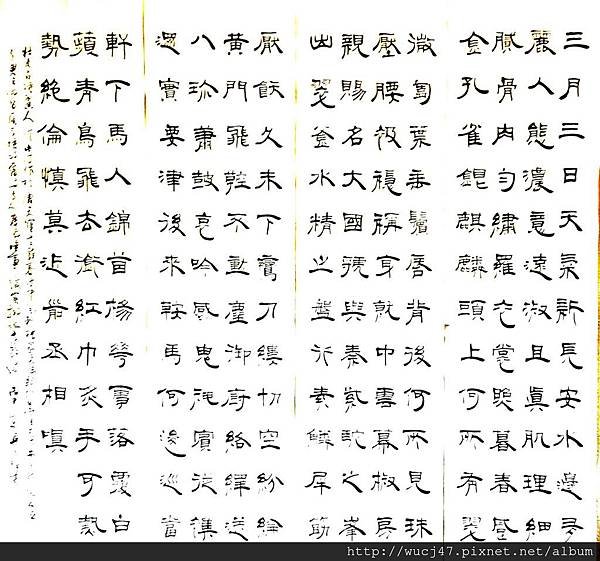 三月三日天氣新長安水邊多
麗人態濃意遠淑且真肌理細
膩骨肉勻繡羅衣裳照暮春蹙
金孔雀銀麒麟頭上何所有翠
微匐葉垂鬢脣背後何所見珠
壓腰衱穩稱身就中雲幕椒房
親賜名大國虢與秦紫駝之峯
出翠釜水精之盤行素鱗犀筯
厭飫久未下鸞刀縷切空紛綸
黃門飛鞚不動塵御廚絡繹送
八珍簫鼓哀吟感鬼神賓從雜
遝實要津後來鞍馬何逡巡當
軒下馬人錦茵楊花雪落覆白
蘋青鳥飛去銜紅巾炙手可熱
勢絕倫慎莫近前丞相嗔
http://wucj47.pixnet.net/album